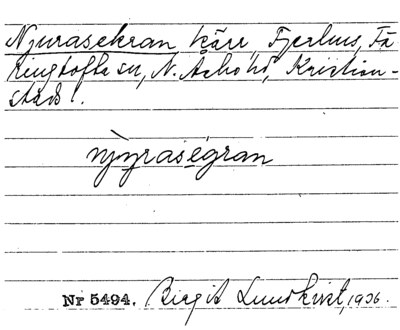 Njurasekran, kärr, Fjerhus, Fä
ringtofta sn, N. Åsbo hd, Kristian-
stads l.
njȳrasęgran
Nr 5494. Birgit Lundkvist, 1936.